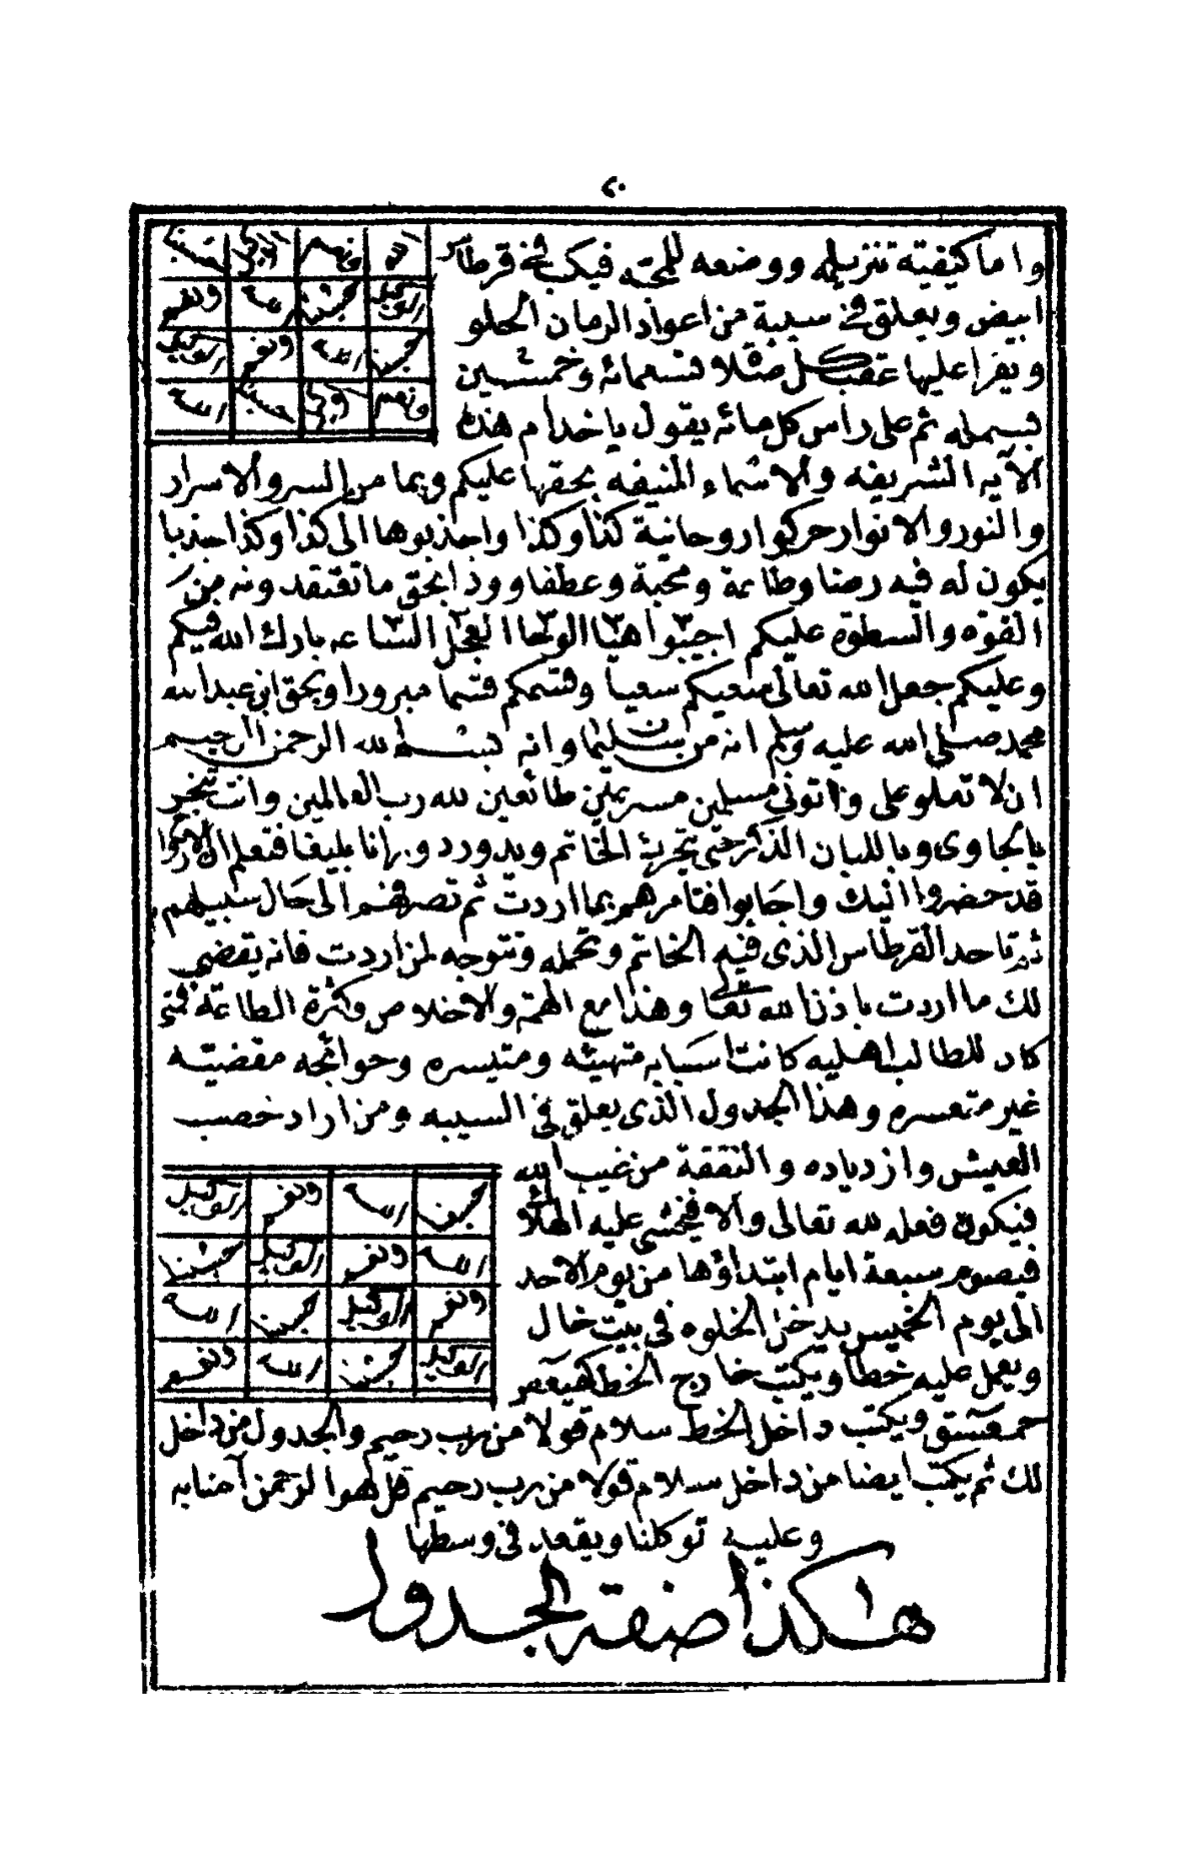 ٢٠
واما كيفية تنزيله ووضعه للمحبة فيكتب في قرطاس
ابيض ويعلق في سيبة من اعواد الرمان الحلو
ويقرا عليها عقب كل صلاة تسعمائة وخمسين
بسمله ثم على راس كل مائه يقول ياخدام هذه
الآيه الشريفه والاسماء المنيفه بحقها عليكم وبما من السر والاسرار
والنور والانوار حركوا روحانية كذا وكذا واجذبوها الى كذا وكذا جذبا
يكون له فيه رضا وطاعة ومحبة وعطفا وودا بحق ما تعتقدونه من
القوه والسطوة عليكم اجيبوا هيا الوحا العجل الساعه بارك الله فيكم
وعليكم جعل الله تعالى سعيكم سعيا وقسمكم قسما مبرورا وبحق ابن عبد الله
محمد صلى الله عليه وسلم انه من سليمان وانه بسم الله الرحمن الرحيم
ان لا تعلو على واتوني مسلمين مسرعين طائعين لله رب العالمين وانت تبخر
بالجاوى وباللبان الذكر حتى تحرك الخاتم ويدور دورانا بليغا فتعلم ان
قد حضروا اليك واجابوا فتامرهم بما اردت ثم تصرفهم الى حال سبيلهم
ثم تاخد القرطاس الذى فيه الخاتم وتحمله وتتوجه لمن اردت فانه يقضي
لك ما اردت باذن الله تعالى وهذا مع الهمة والاخلاص وكثرة الطاعة فمتى
كاد للطالب اهليه كانت اسبابه متهيئه ومتيسره وحوائجه مقضيته
غير متعسره وهذا الجدول الذى يعلق في السيبه ومن اراد خصب
العيش وازدياده والنفقة من غيب الله
فيكون فعله لله تعالى والا فيخشى عليه الهلاك
فيصوم سبعة ايام ابتداؤها من يوم الاحد
الى يوم الخميس يدخل الخلوه في بيت خال
ويعمل عليه خطا ويكتب خارج الخط كهيعص
حمعسق ويكتب داخل الخط سلام قولا من رب رحيم والجدول من داخل
لك ثم يكتب ايضا من داخل سلام قولا من رب رحيم قل هو الرحمن آمنا به
وعليه توكلنا ويقعد في وسطها
هاكذا صفة الجدول
الله ونعم الوكيل حسبنا
الوكيل حسبنا الله ونعم
حسبنا الله ونعم الوكيل
ونعم الوكيل حسبنا الله
حسبنا الله ونعم الوكيل
الله ونعم الوكيل حسبنا
ونعم الوكيل حسبنا الله
الوكيل حسبنا الله ونعم